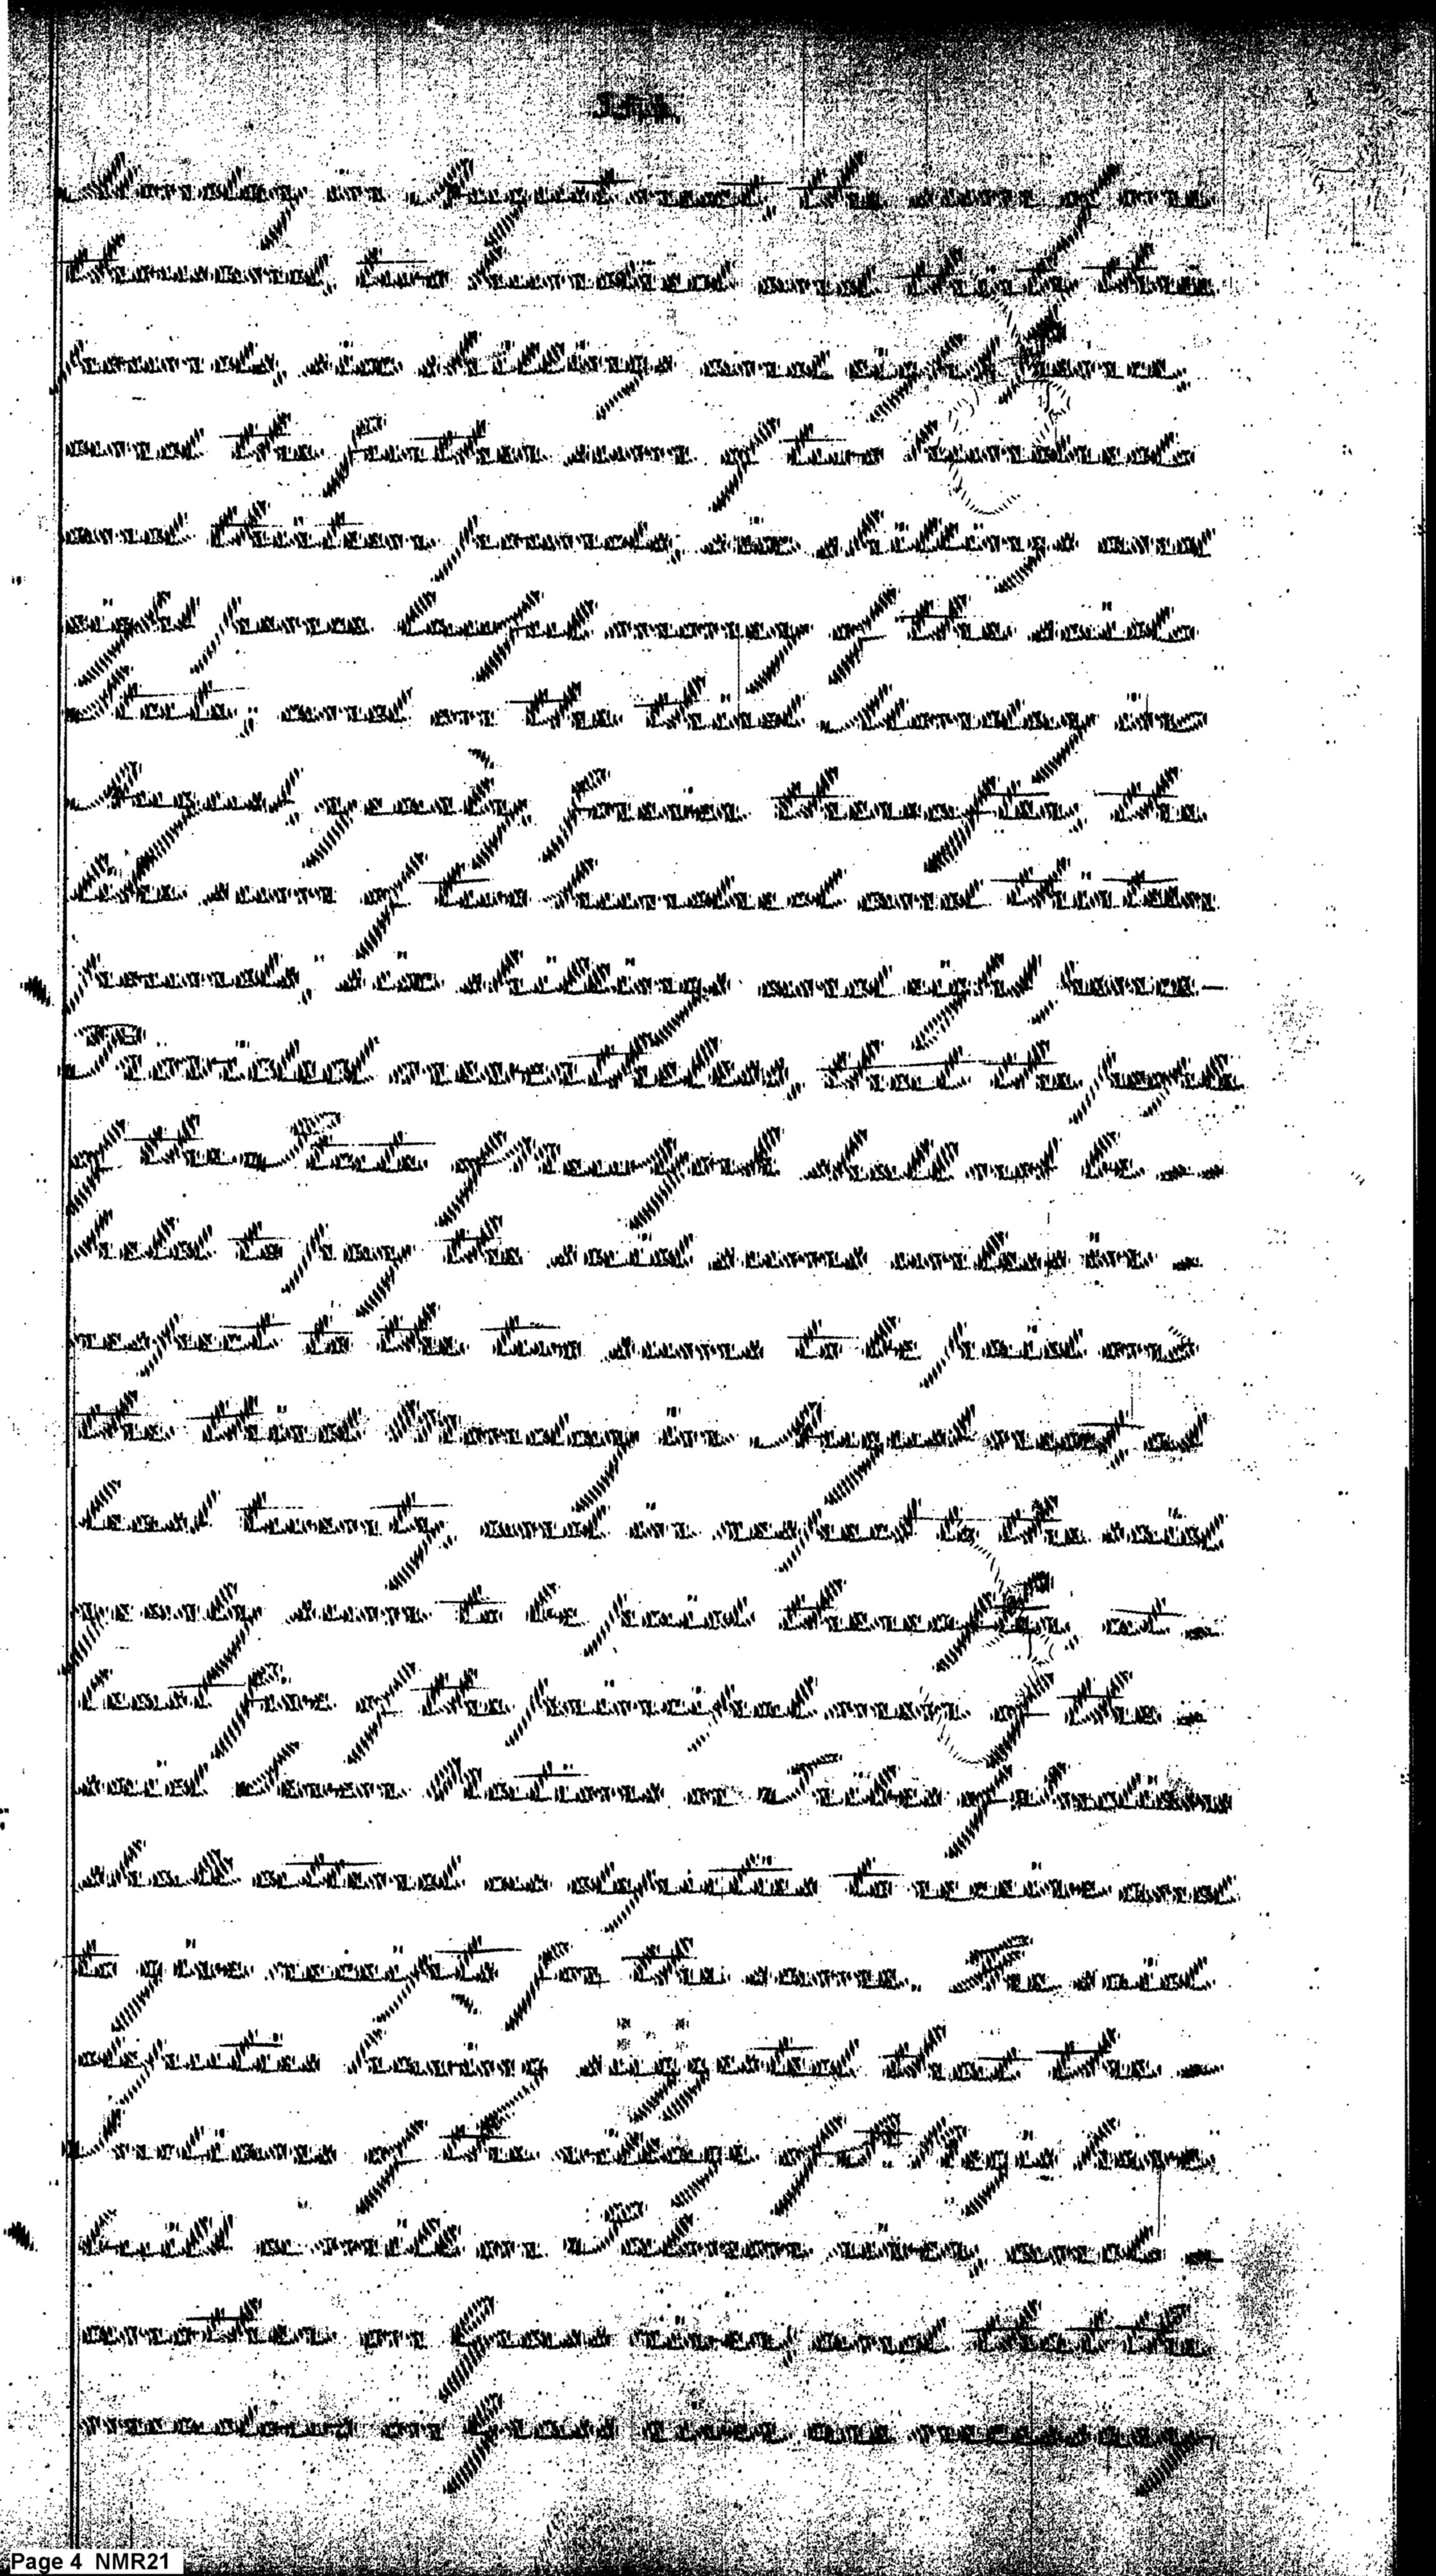 Monday in August next, the sum of one
thousand, two hundred and thirty three
pounds, six shillings and eight pence,
and the further sum of two hundred
and thirteen pounds, six shillings and
eight pence lawful money of the said
State, and on the third Monday in
August, yearly, forever thereafter, the
like sum of two hundred and thirteen
pounds, six shillings and eight pence —
Provided nevertheless, that the people
of the State of New York shall not be —
held to pay the said sums unless in —
respect to the two sums to be paid on
the third Monday in August next, at
least twenty, and in respect to the said
yearly sum to be paid thereafter, at —
least five of the principal men of the —
said Seven Nations or Tribes of Indians
shall attend as deputies to receive and
to give receipts for the same. The said
deputies having suggested that the —
Indians of the village of St. Regis have
built a mill on Salmon river, and —
another on Grass river, and that the
meadows on Grass river are necessary
Page 4 NMR21